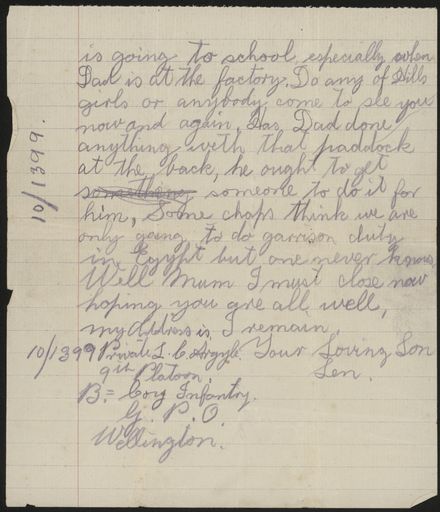 is going to school, especially when
Dad is at the factory. Do any of Hills
girls or anybody come to see you
now and again, Has Dad done
anything with that paddock
at the back, he ought to get
something someone to do it for
him, Some chaps think we are
only going to do garrison duty
in Egypt but one never knows
Well Mum I must close now
hoping you are all well,
my address is, I remain,
10/1399 Private L. C. Argyle. Your Loving Son
9th Platoon. Len.
B. Coy Infantry.
G. P. O.
Wellington.
10/1399.